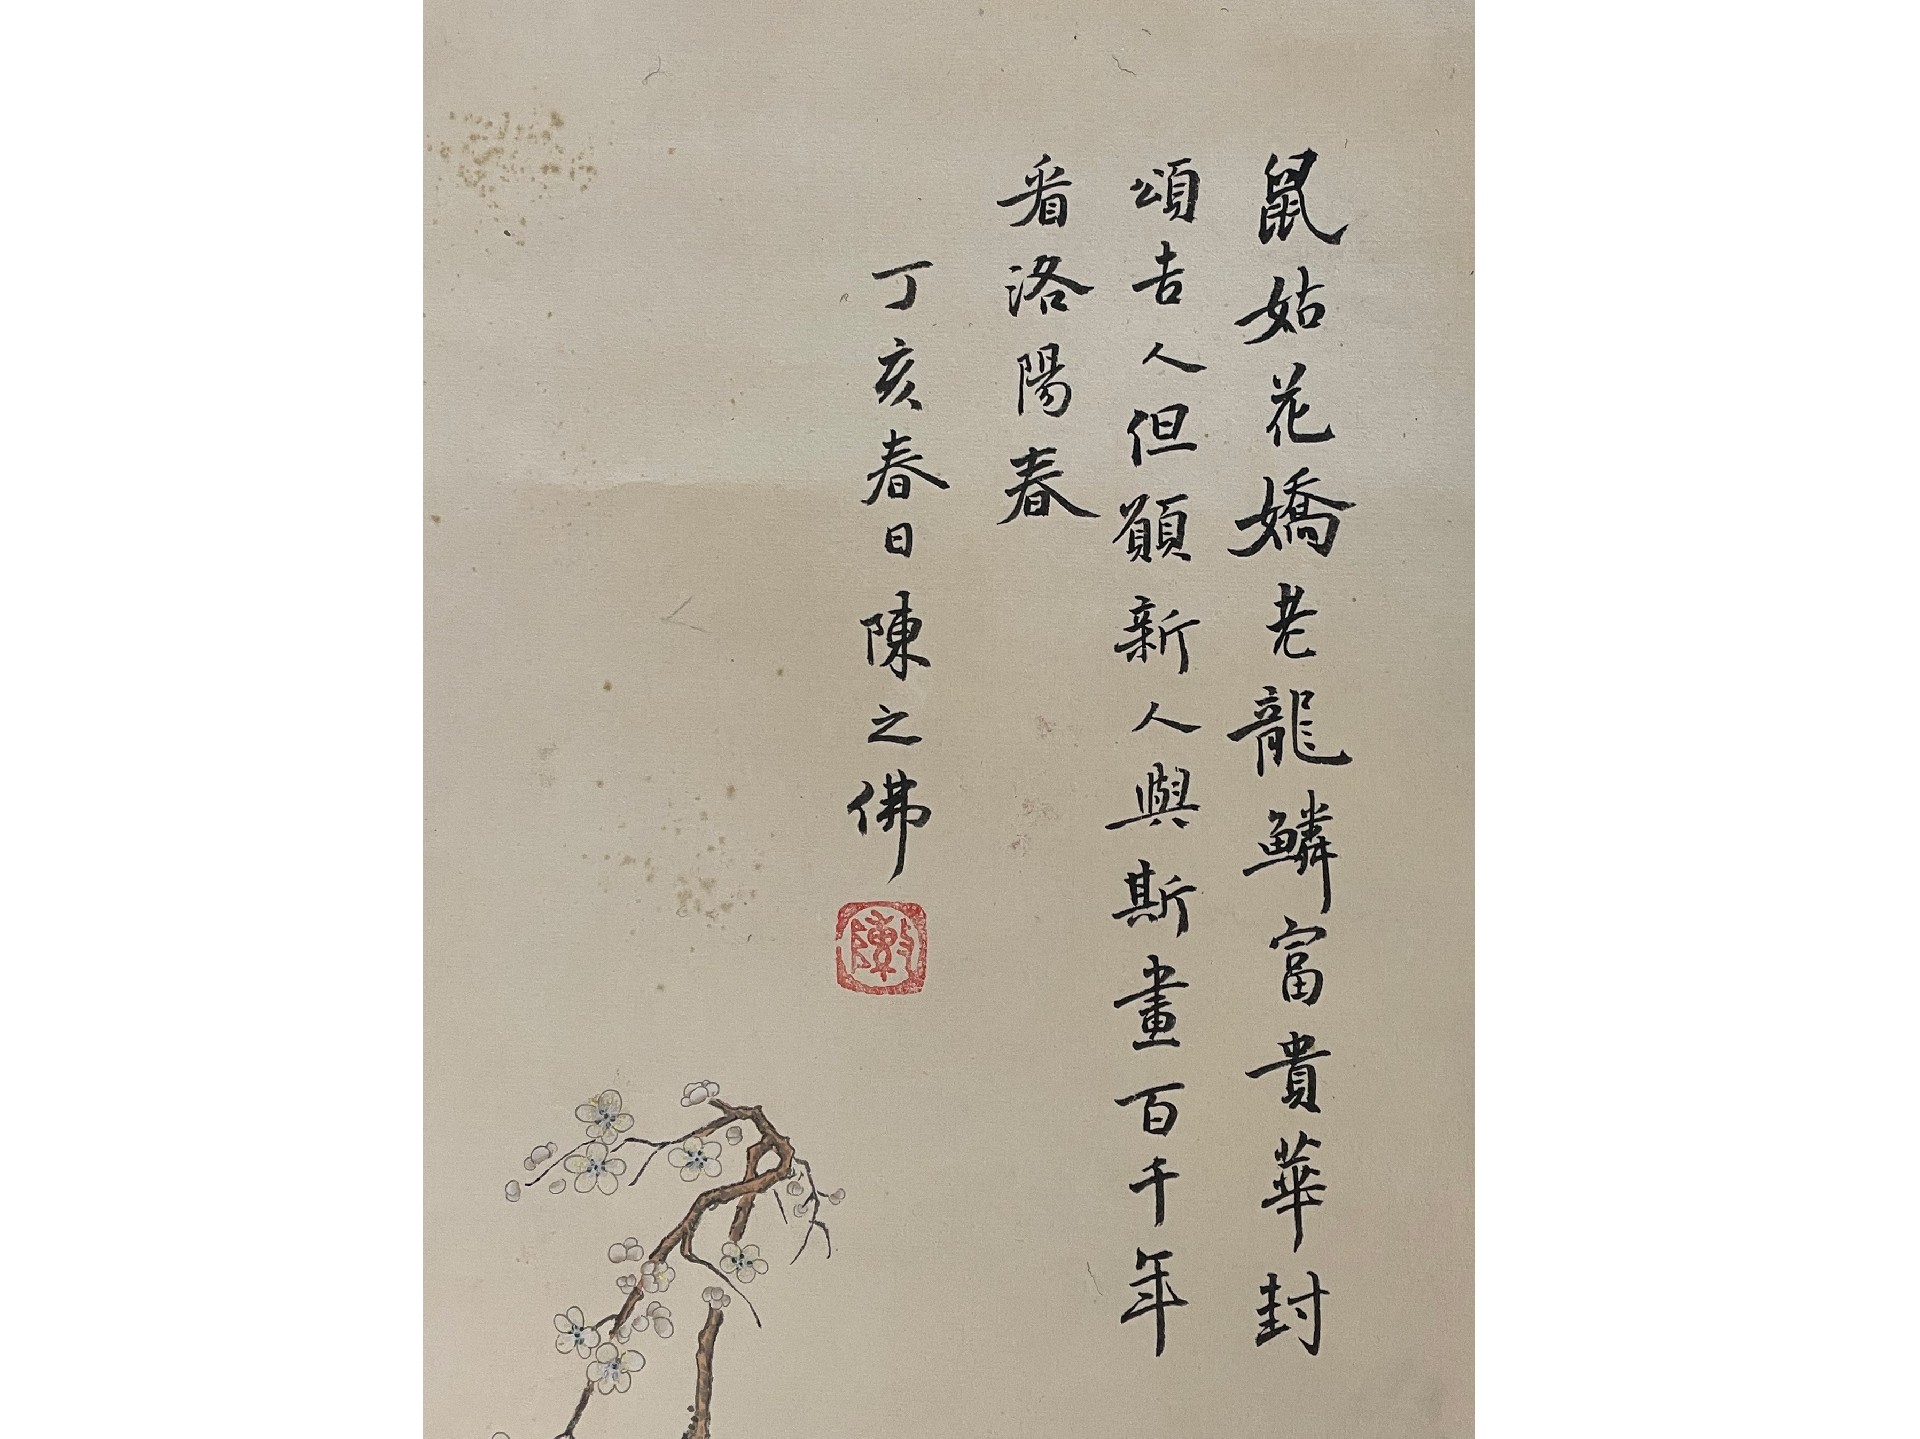 鼠姑花嬌老龍鱗富貴華封
頌吉人但願新人與斯畫百千年
看洛陽春
丁亥春日陳之佛